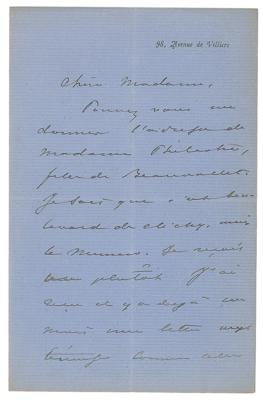 98, Avenue de Villiers
Chère Madame,
Pouvez vous me
donner l'adresse de
Madame Philastre,
fille de Beauvallet.
Je sais que c'est bou-
levard de Clichy, mais
le numéro. Je reçois
plutôt j'ai
reçu il y a déjà un
mois une lettre
comme